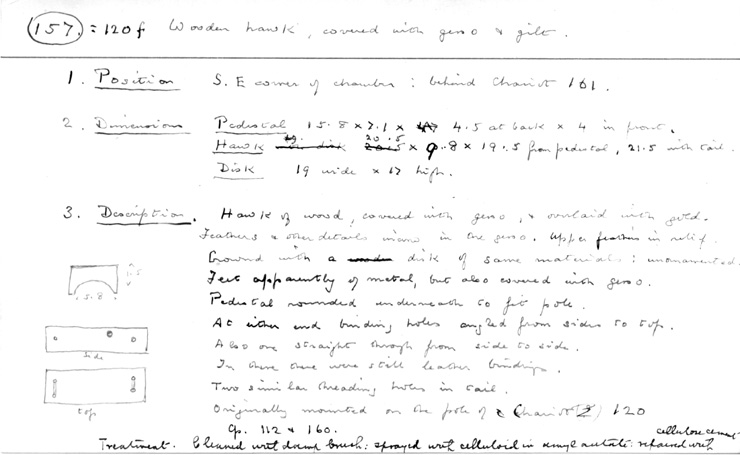 157. = 120 f Wooden hawk, covered with gesso & gilt.
1. Position S.E corner of chamber : behind Chariot 161.
2. Dimensions Pedestal 15.8 x 7.1 x 4.5 at back x 4 in front.
Hawk 20.5 x 9.8 x 19.5 from pedestal, 21.5 with tail.
Disk 19 wide x 17 high.
3. Description. Hawk of wood, covered with gesso, & overlaid with gold.
Feathers & other details incised in the gesso. Upper feathers in relief.
Crowned with a disk of same materials : unornamented.
Feet apparently of metal, but also covered with gesso.
15.8
Pedestal rounded underneath to fit pole.
At either end binding holes angled from sides to top.
side
Also one straight through from side to side.
In these there were still leather bindings.
Two similar threading holes in tail.
top
Originally mounted on the pole of (Chariot 2) 120
Cp. 112 & 160.
cellulose cement
Treatment. Cleaned with damp brush : sprayed with celluloid in amyl acetate : repaired with